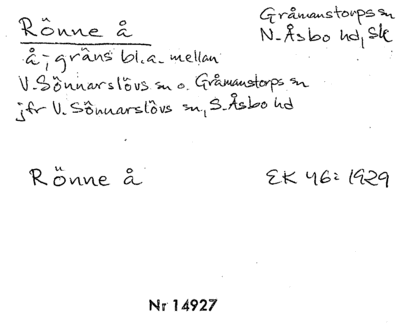 Rönne å
Gråmanstorps sn
N-Åsbo hd, Sk
å; gräns bl.a. mellan
V-Sönnarslövs sn o. Gråmanstorps sn
jfr V. Sönnarslövs sn, S. Åsbo hd
Rönne å
EK 46: 1929
Nr 14927